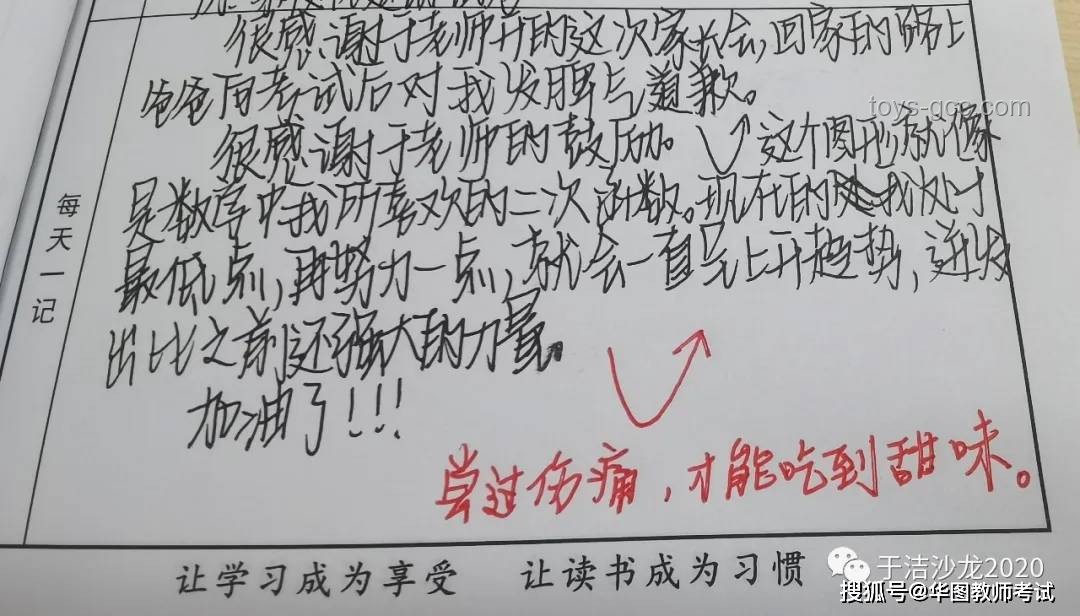 很感谢于老师开的这次家长会,回家的路上
爸爸向考试后对我发脾气道歉。
toys-gcs.com
很感谢于老师的鼓励。这个图形就像
是数学中我所喜欢的二次函数。现在的我处于
最低点,再努力一点,就会一直呈上升趋势,迸发
出比之前还强大的力量。
加油了!!!
尝过伤痛,才能吃到甜味。
每天一记
让学习成为享受 让读书成为习惯
于洁沙龙2020
搜狐号@华图教师考试